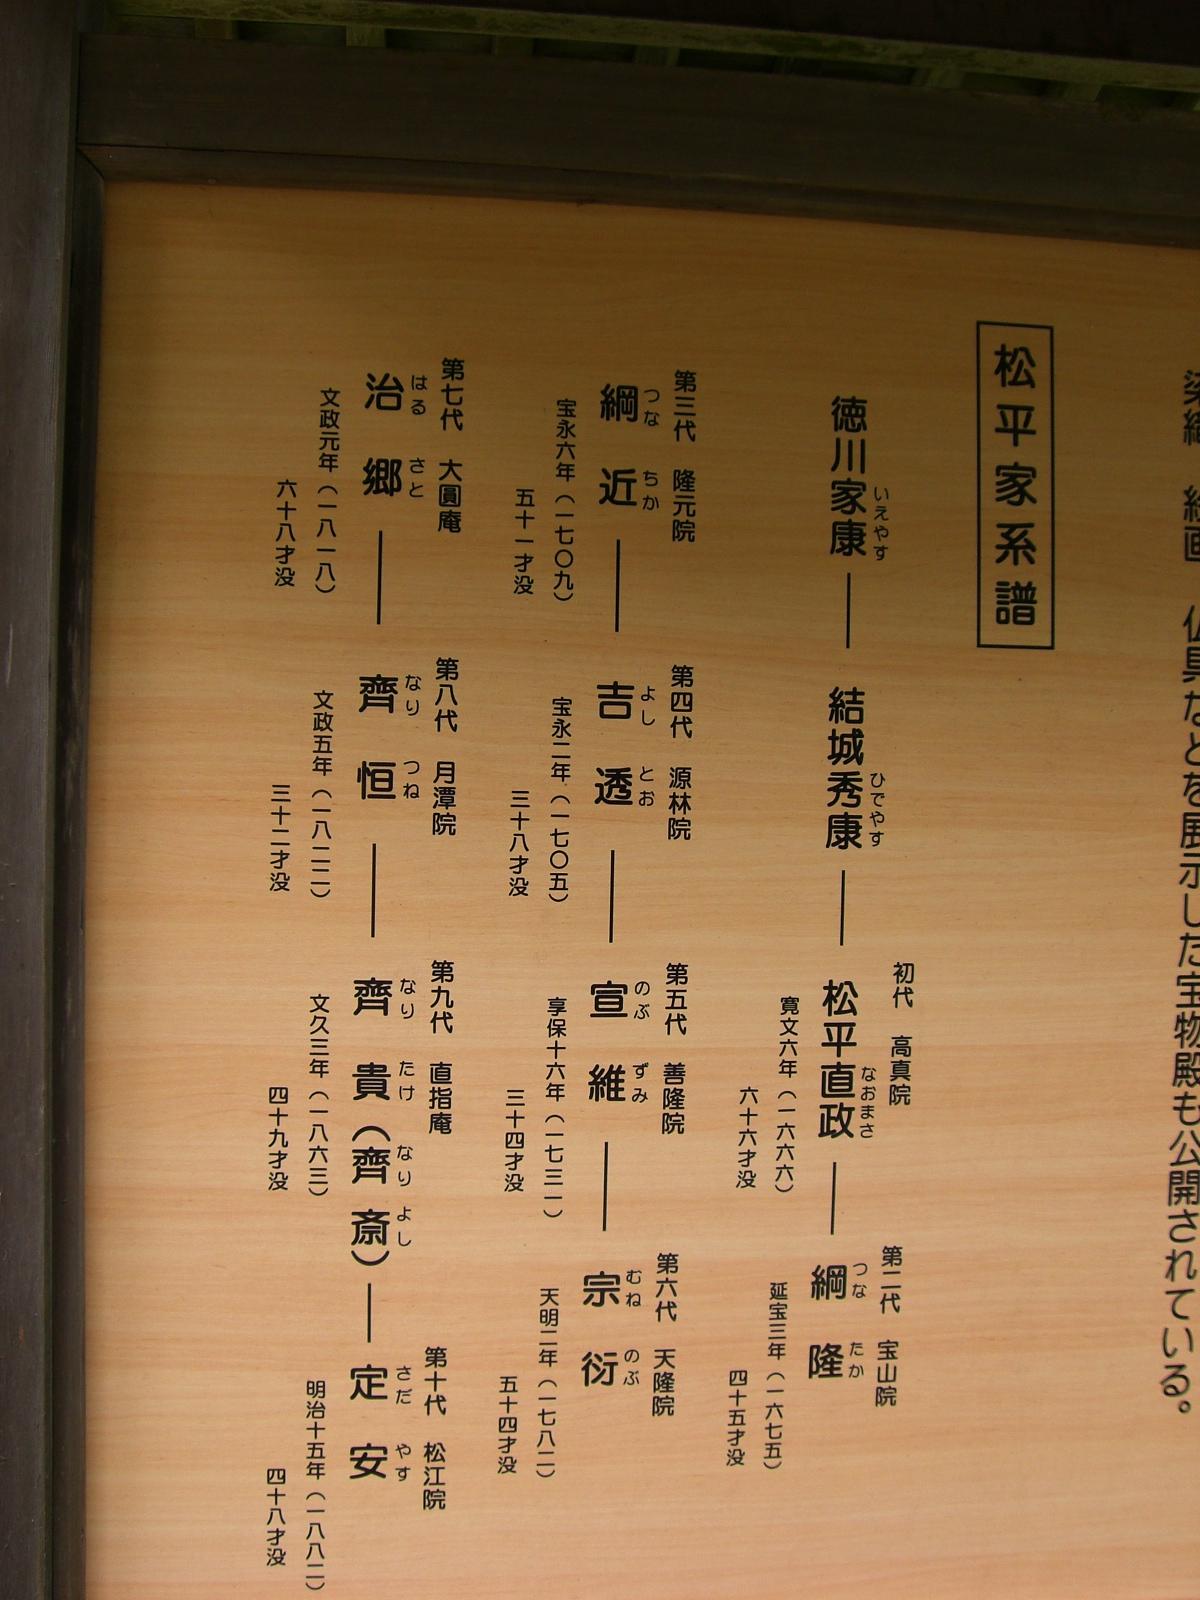 仏具などを展示した宝物殿も公開されている。
松平家系譜
徳川家康
いえやす
結城秀康
ひでやす
初代 高真院
松平直政
なおまさ
寛文六年(一六六六)
六十六才没
第二代 宝山院
綱隆
つなたか
延宝三年(一六七五)
四十五才没
第三代 隆元院
綱近
つなちか
宝永六年(一七〇九)
五十一才没
第四代 源林院
吉透
よしとお
宝永二年(一七〇五)
三十八才没
第五代 善隆院
宣維
のぶずみ
享保十六年(一七三一)
三十四才没
第六代 天隆院
宗衍
むねのぶ
天明二年(一七八二)
五十四才没
第七代 大圓庵
治郷
はるさと
文政元年(一八一八)
六十八才没
第八代 月潭院
齊恒
なりつね
文政五年(一八二二)
三十二才没
第九代 直指庵
齊貴(齊斎)
なりたけ なりよし
文久三年(一八六三)
四十九才没
第十代 松江院
定安
さだやす
明治十五年(一八八二)
四十八才没